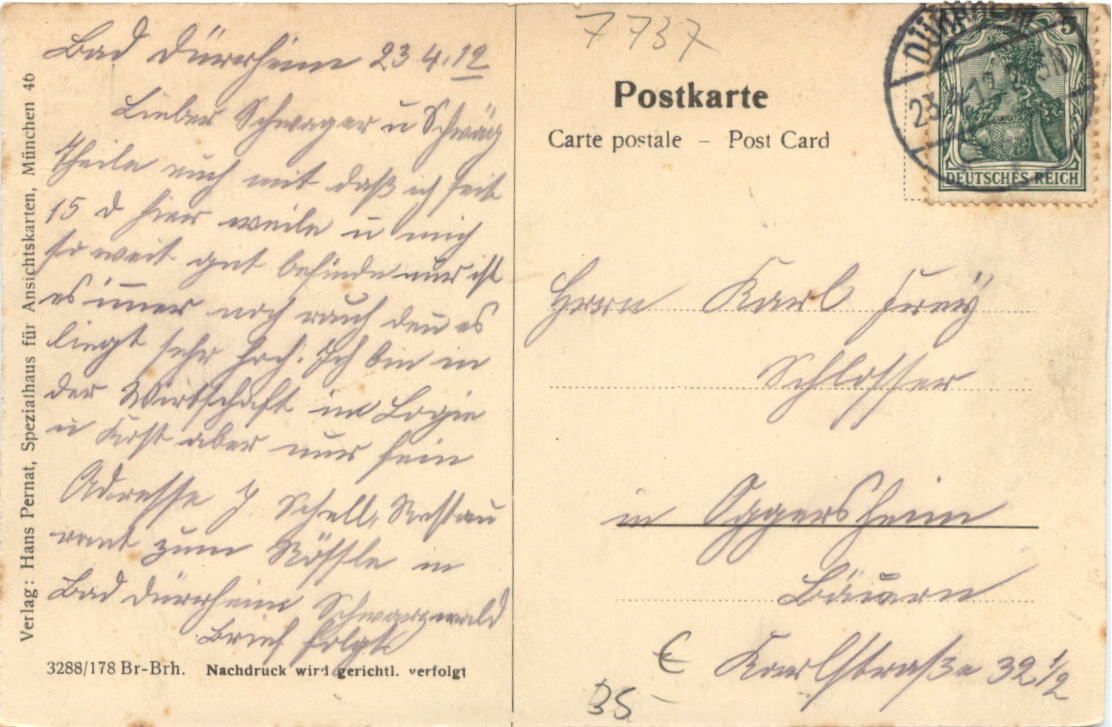 Bad Dürrheim 23.4.12
Lieber Schwager u Schwäg
Theile euch mit daß ich seit
15 d hier weile u mich
so weit gut befinde nur ist
es immer noch rauh den es
liegt sehr hoch. Ich bin in
der Wirtschaft in Logie
u Kost aber nur fein
Adresse J Schell, Restau
rant zum Rössle in
Bad Dürrheim Schwarzwald
Brief folgt
3288/178 Br-Brh. Nachdruck wird gerichtl. verfolgt
Verlag: Hans Pernat, Spezialhaus für Ansichtskarten, München 46
7737
Postkarte
Carte postale – Post Card
DÜRRHEIM
23.4.12
5
DEUTSCHES REICH
Herrn Karl Frey
Schlosser
in Oggersheim
Baüern
Karlstraße 32 1/2
€
35-